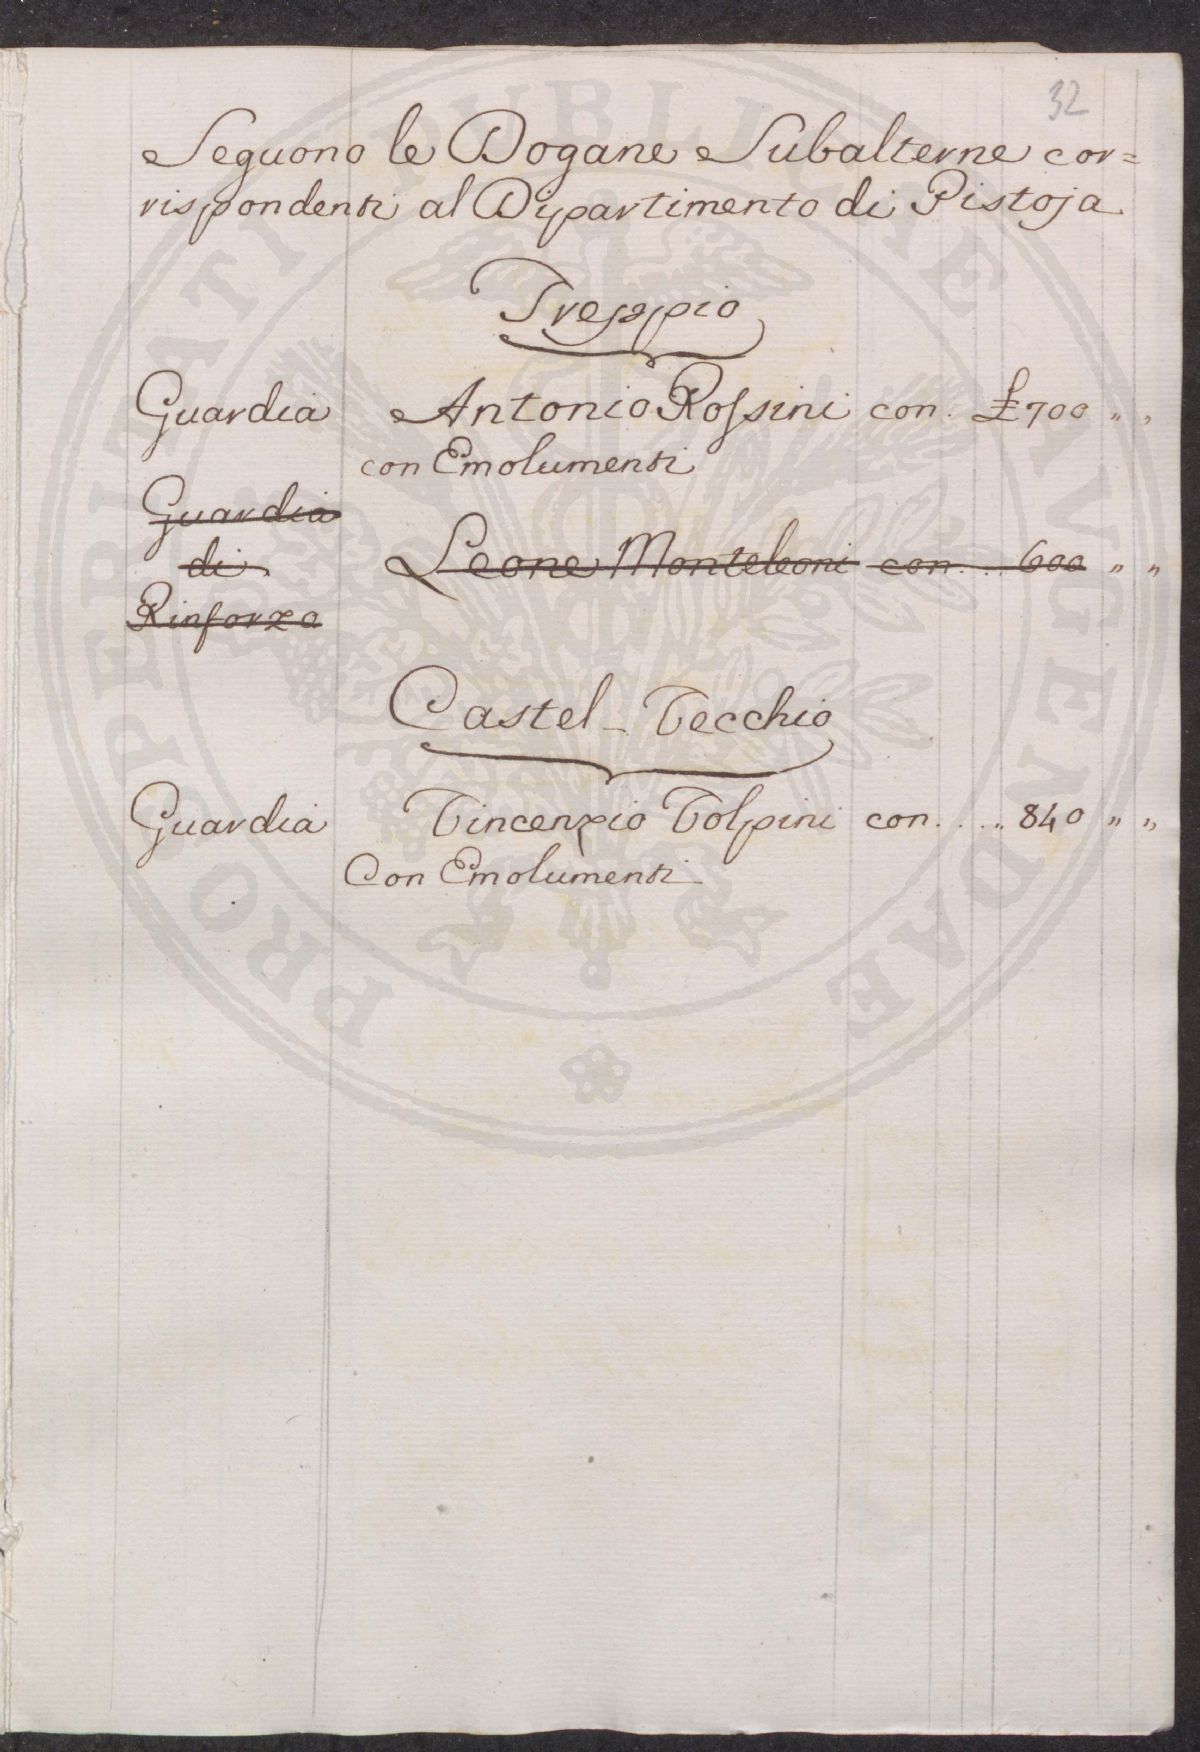 32
Seguono le Dogane Subalterne cor=
rispondenti al Dipartimento di Pistoja
Treppio
Guardia Antonio Rossini con. £ 700 " "
con Emolumenti
Guardia
di Leone Monteleoni con... 600 " "
Rinforzo
Castel-Vecchio
Guardia Vincenzio Volpini con..... 840 " "
Con Emolumenti
PROPERITATI PUBLICAE AUGENDAE